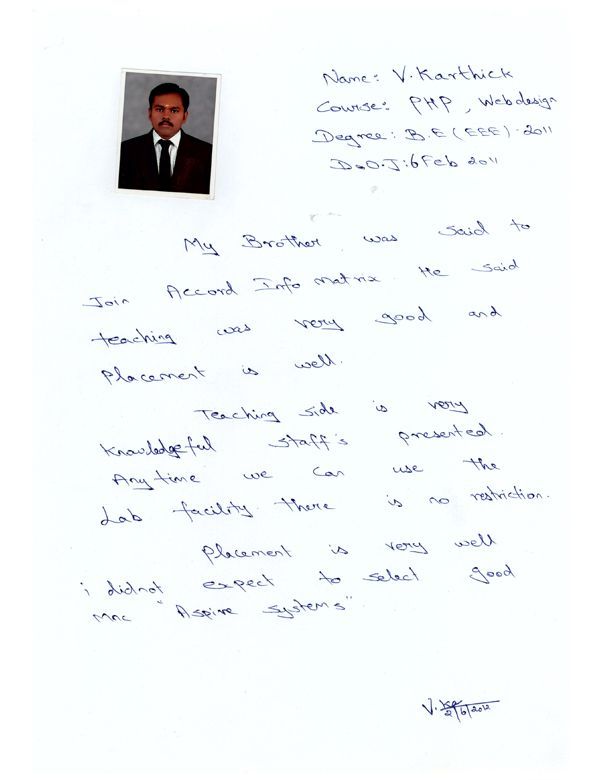 Name: V. Karthick
Course: PHP, Webdesign
Degree: B.E (EEE). 2011
D.O.J: 6 Feb 2011
My Brother was said to
Join Accord Info Matrix. He said
teaching was very good and
Placement is well.
Teaching side is very
Knowledgeful staff's presented.
Anytime we can use the
Lab facility. there is no restriction.
Placement is very well
i didnot expect to select good
Mnc "Aspire systems".
V.
2/6/2012